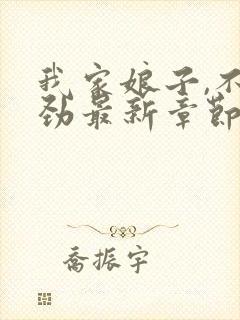 我家娘子,不
劲最新章节
喬振宇